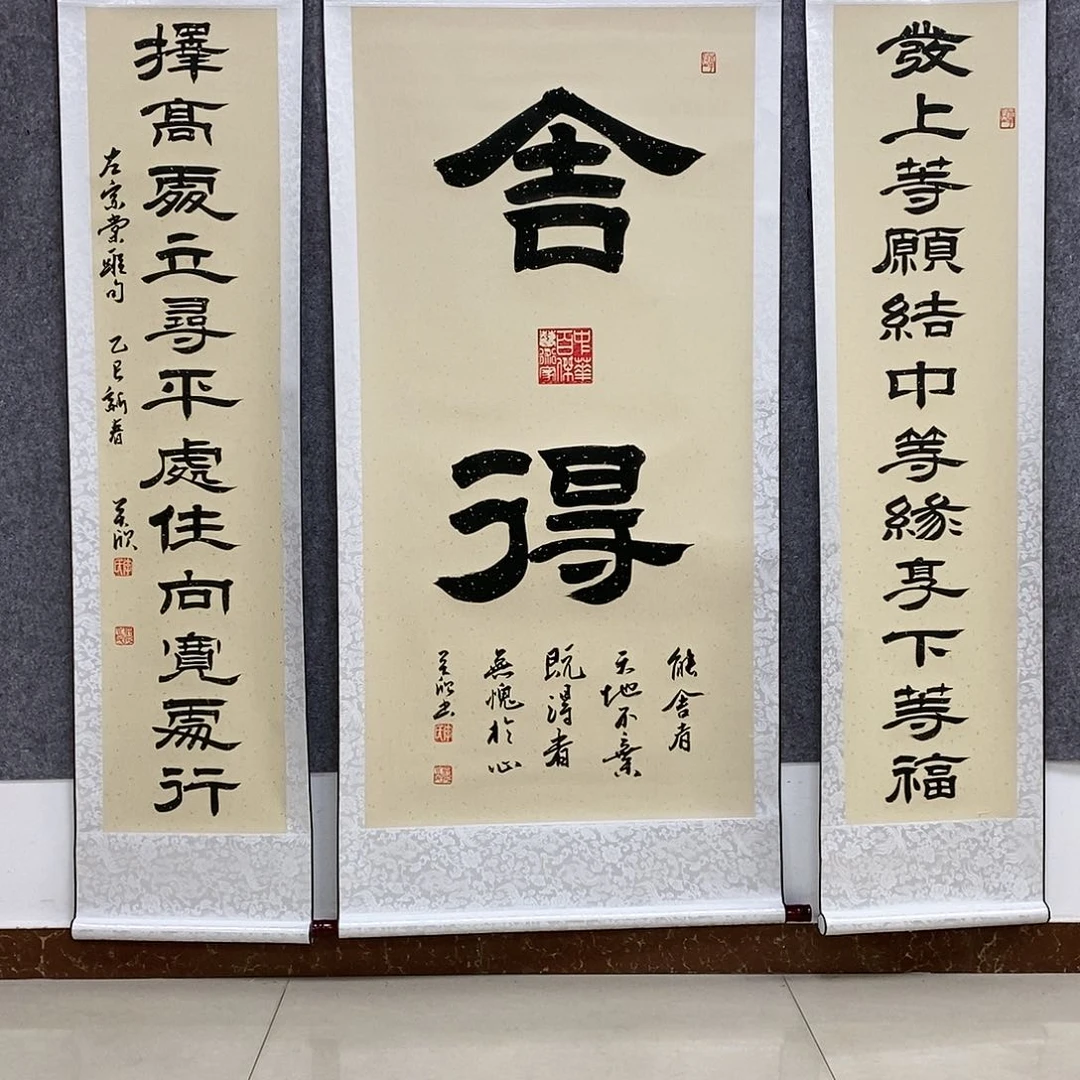 發上等願結中等緣享下等福
舍
中華百傑藝術家
得
能舍者
天地不棄
既得者
無愧於心
欣书
擇高處立尋平處住向寬處行
左宗棠聯句 乙巳新春 欣